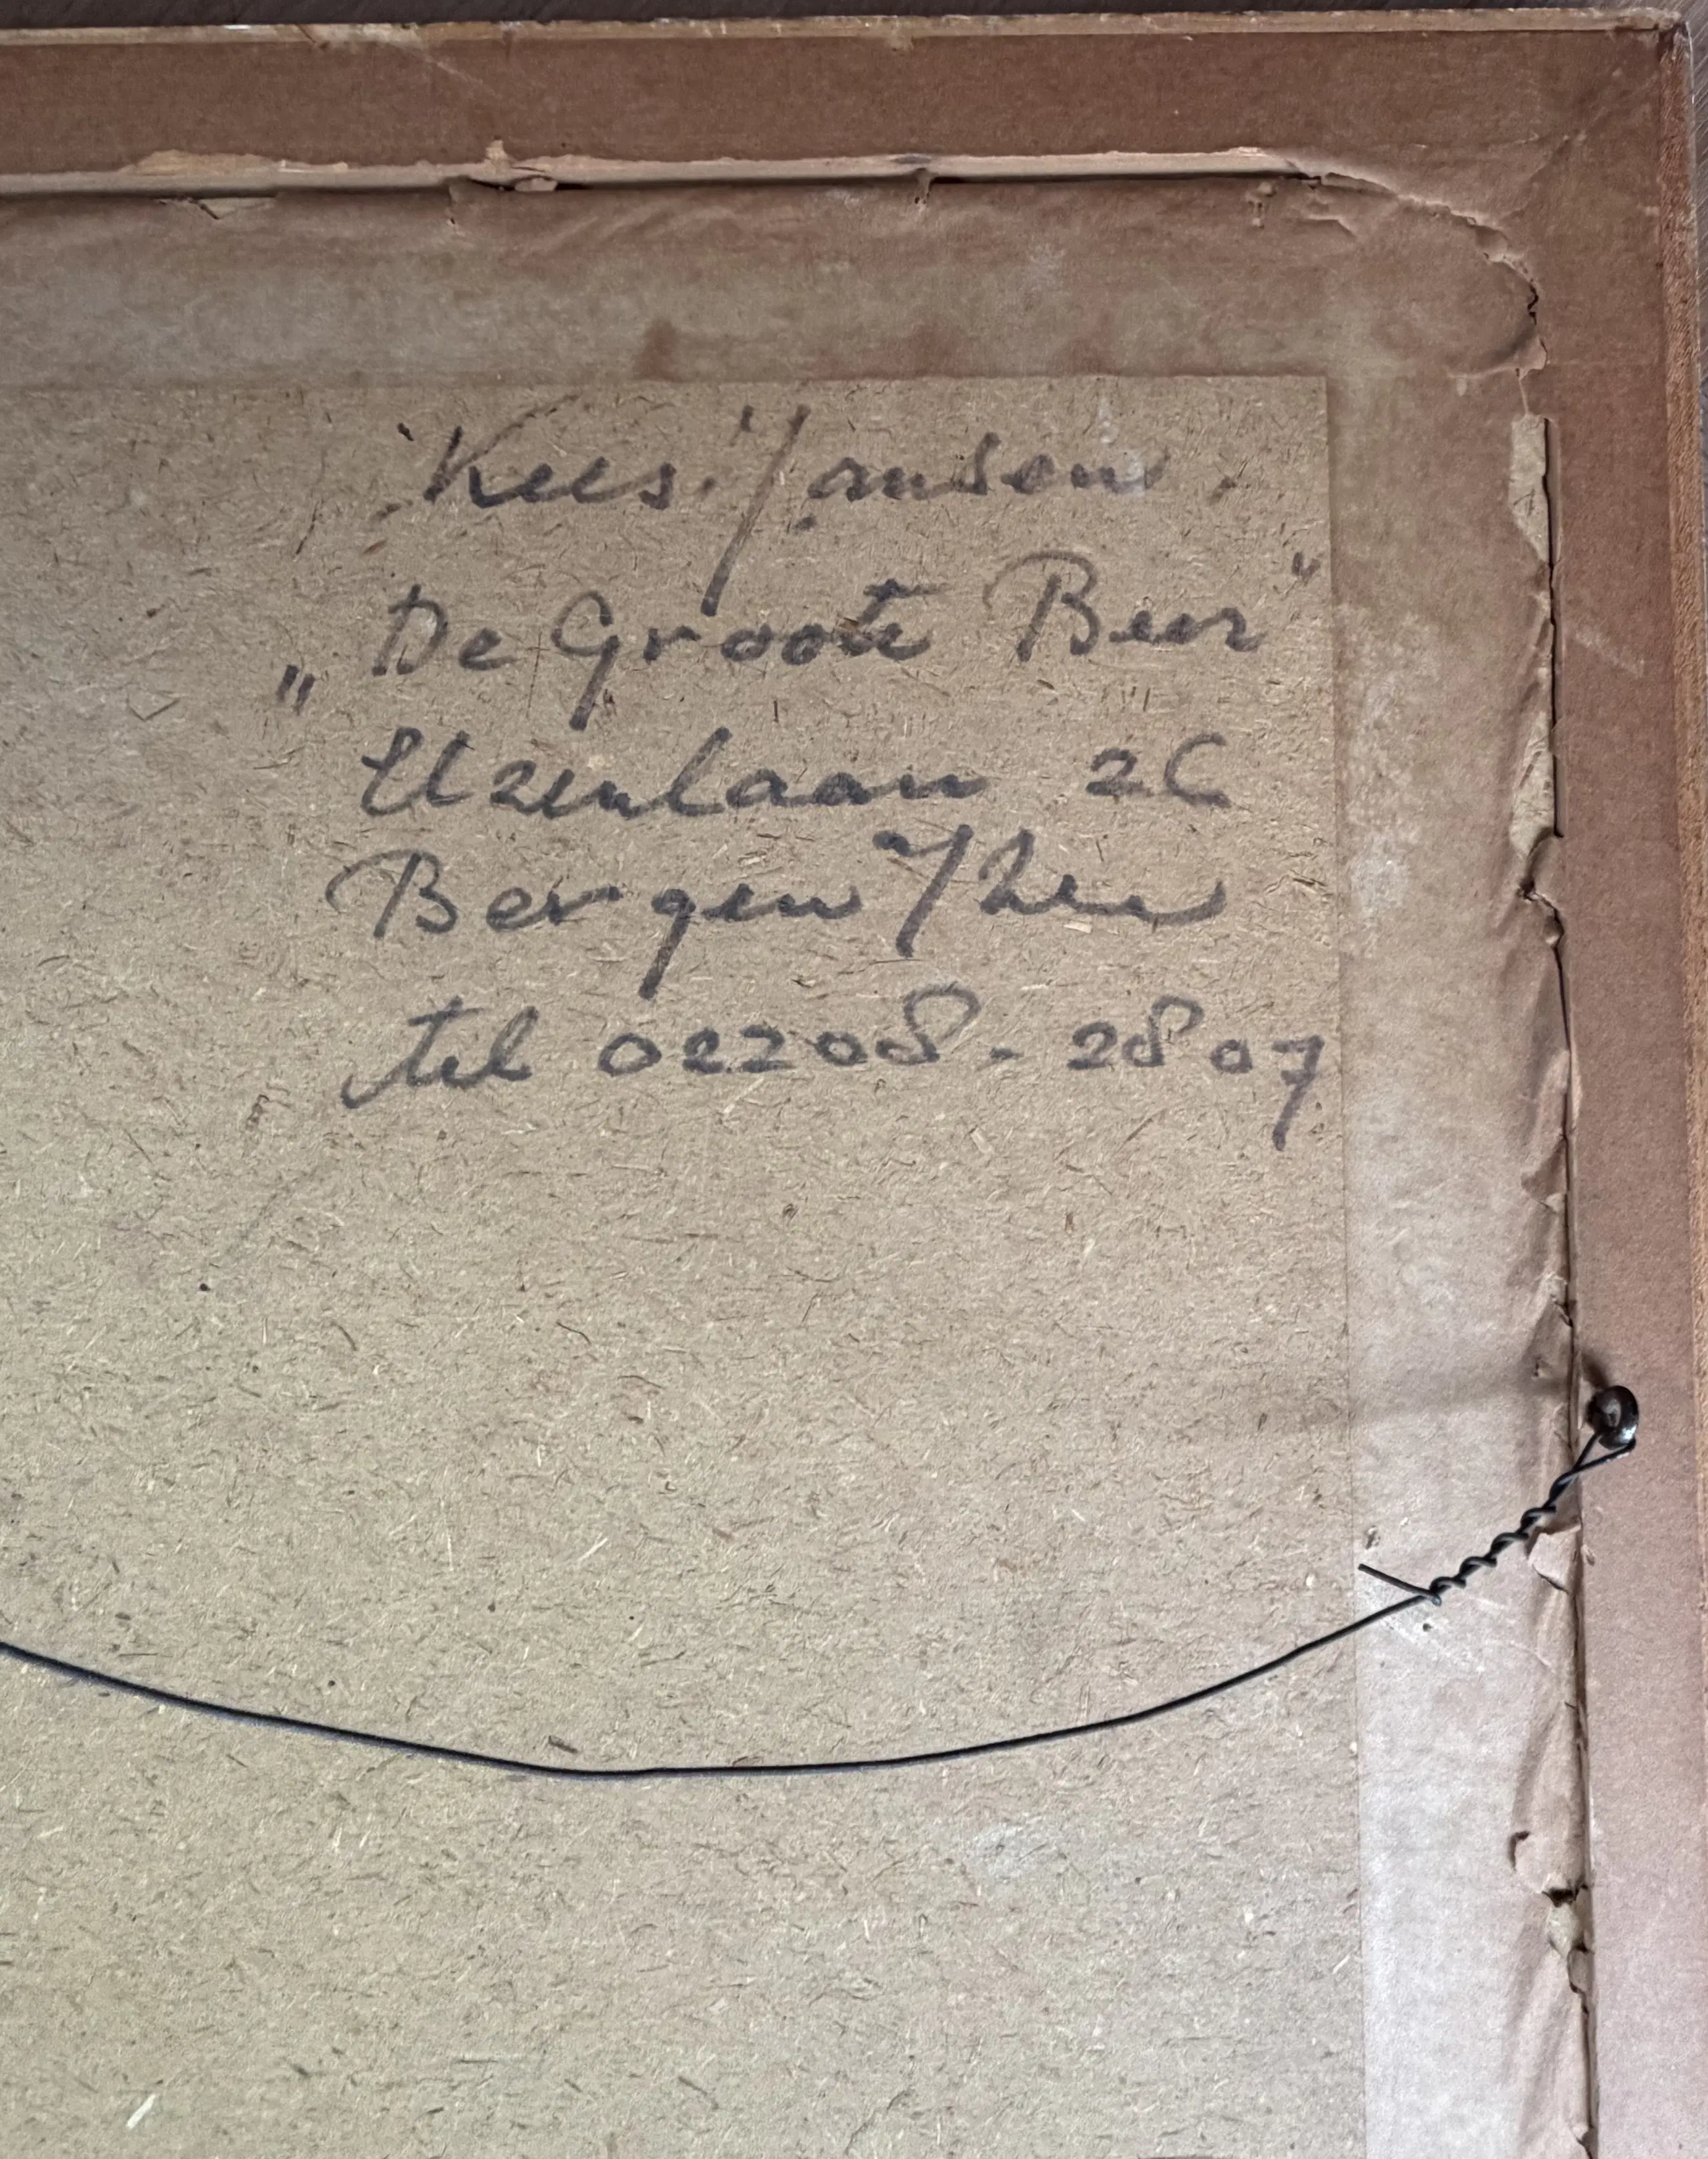 Kees Jansen
„De Groote Beer"
Elzenlaan 26
Bergen /Zee
tel 02208-2807